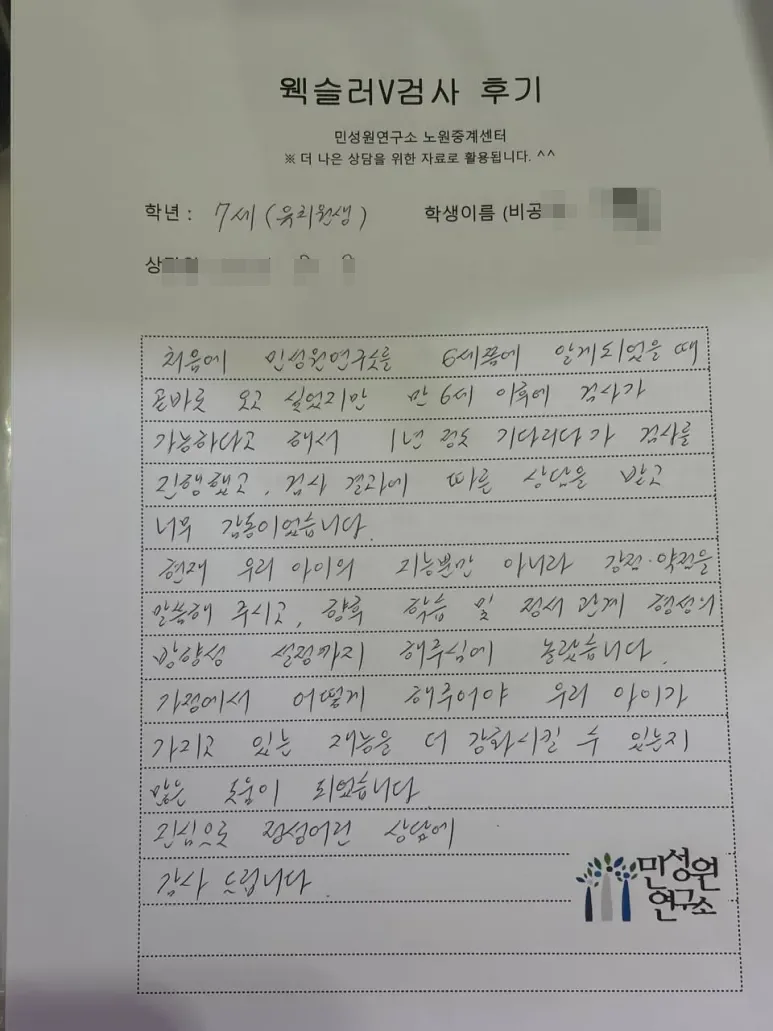 웩슬러V검사 후기
민성원연구소 노원중계센터
※ 더 나은 상담을 위한 자료로 활용됩니다. ^^
학년 : 7세 (유치원생) 학생이름 (비공
상
처음에 민성원연구소를 6세쯤에 알게되었을 때
곧바로 오고 싶었지만 만 6세 이후에 검사가
가능하다고 해서 1년 정도 기다리다가 검사를
진행했고, 검사 결과에 따른 상담을 받고
너무 감동이었습니다.
현재 우리 아이의 지능뿐만 아니라 강점·약점을
말씀해 주시고, 향후 학습 및 정서 관계 형성의
방향성 설정까지 해주심에 놀랐습니다.
가정에서 어떻게 해주어야 우리 아이가
가지고 있는 재능을 더 강화시킬 수 있는지
많은 도움이 되었습니다
진심으로 정성어린 상담에
감사 드립니다.
민성원
연구소